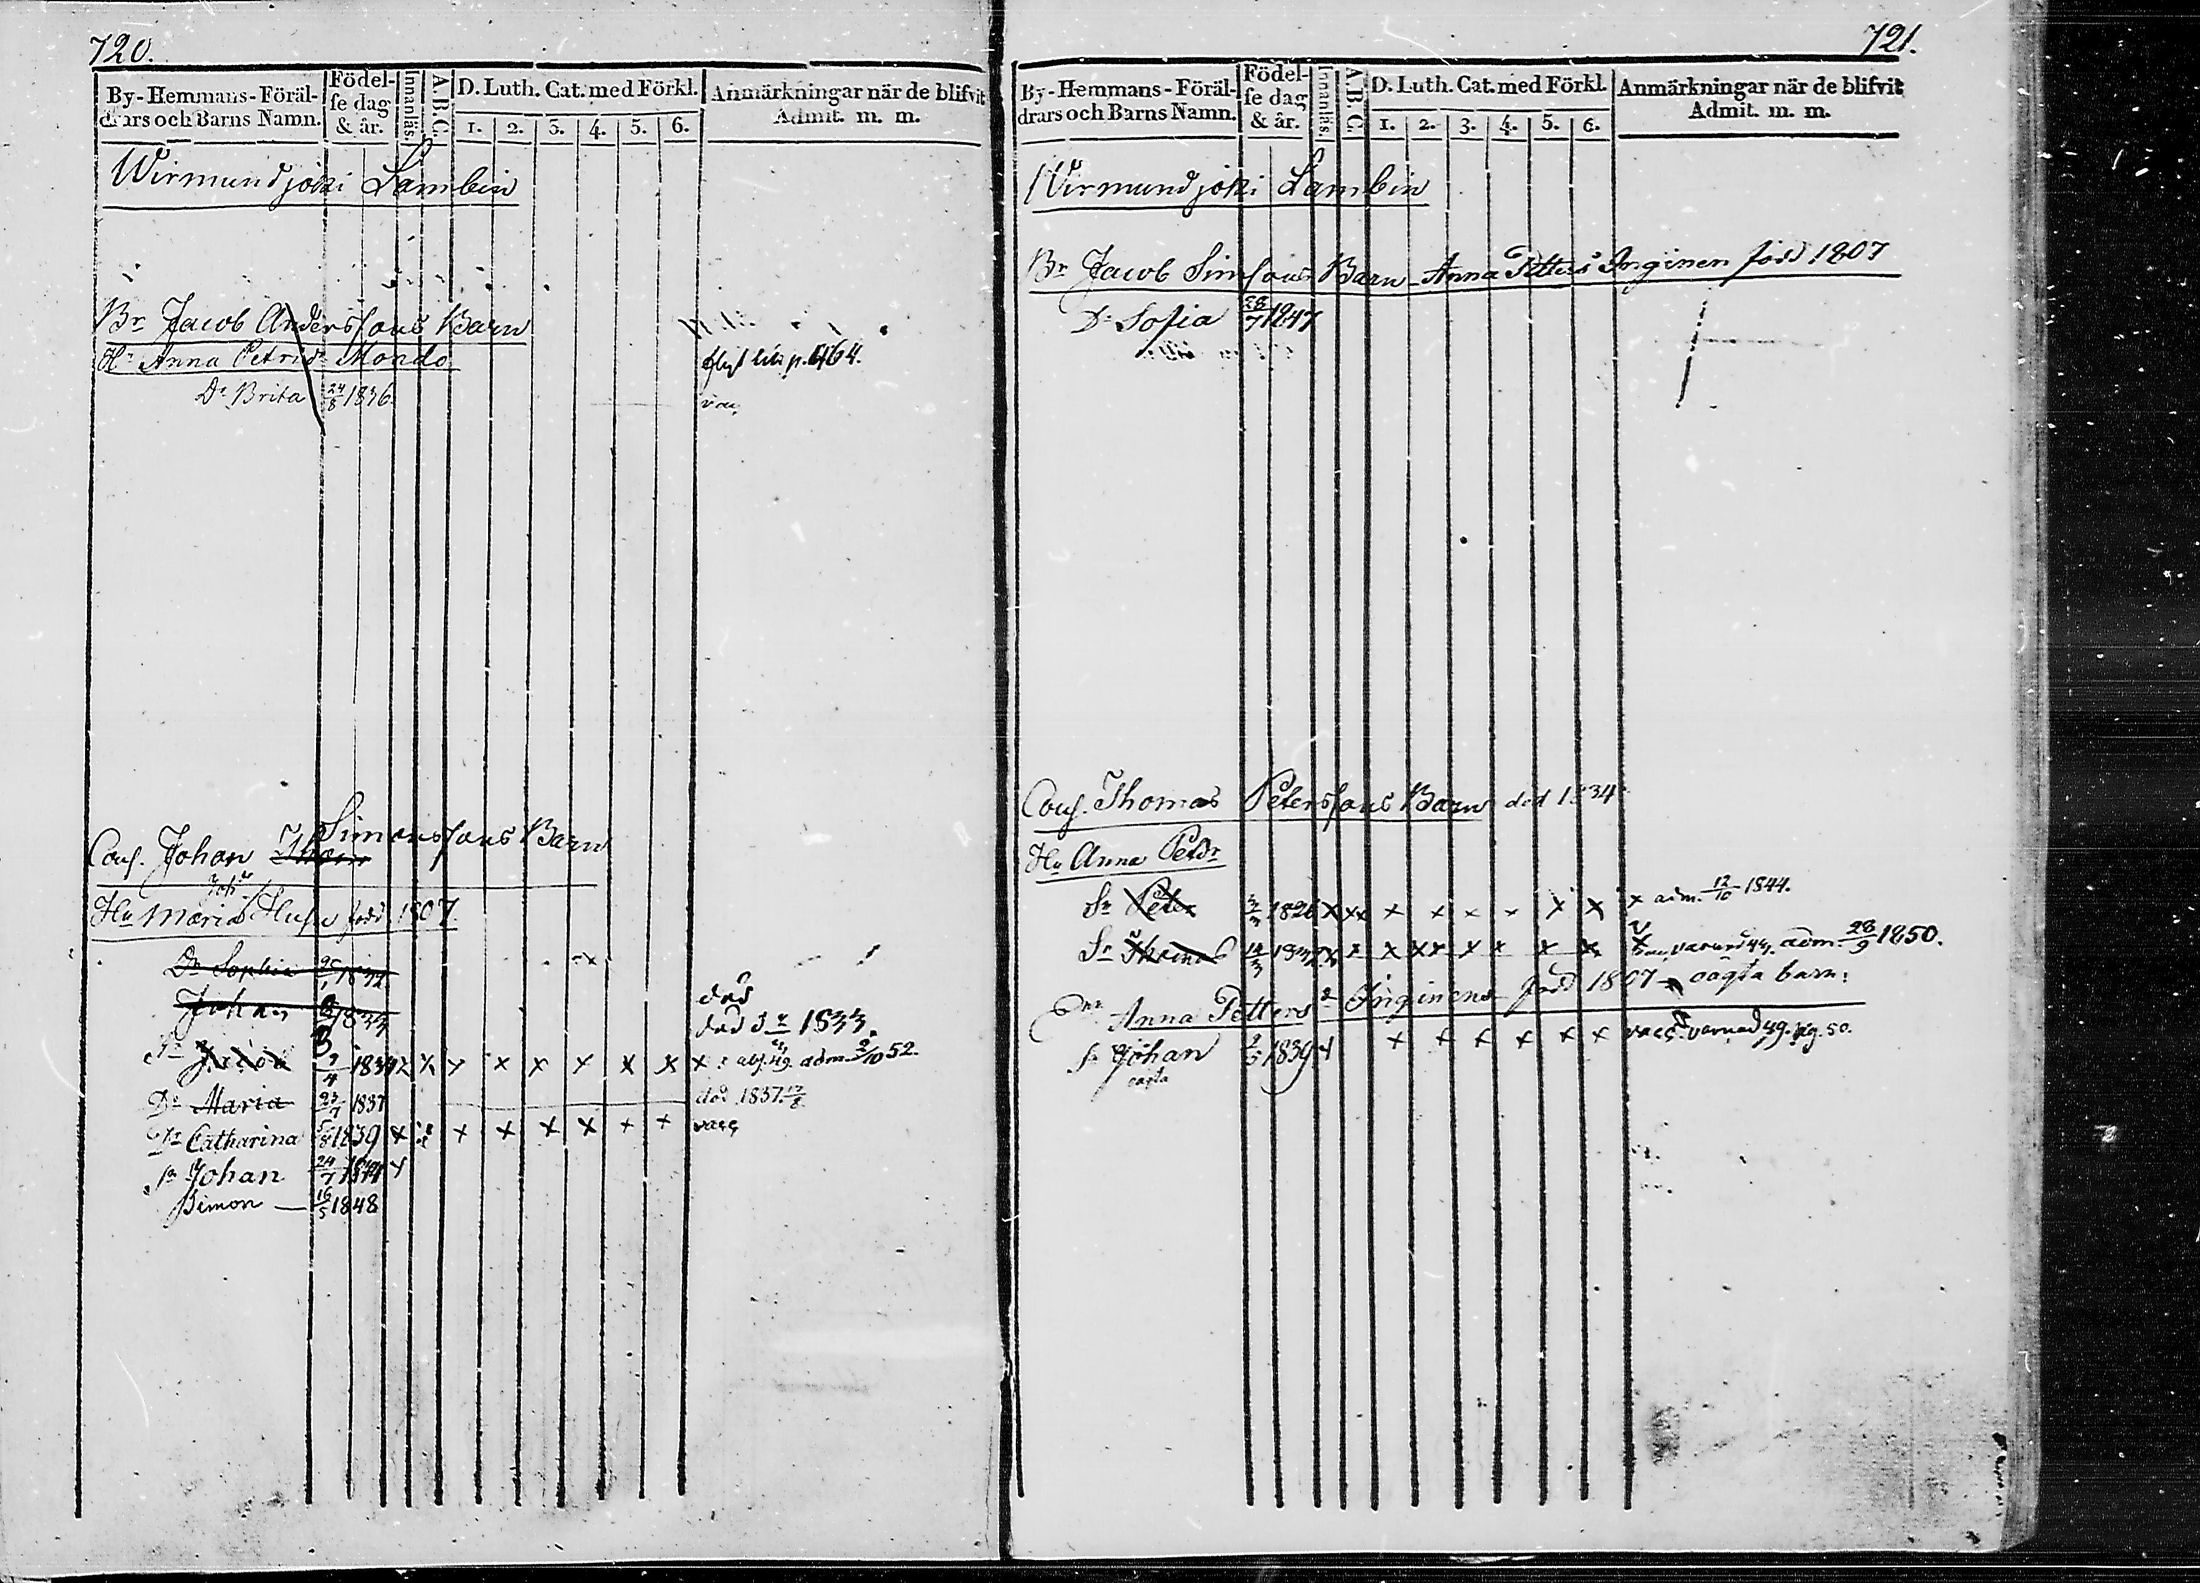 720.
By- Hemmans- Föräl-
drars och Barns Namn.
Födel-
se dag
& år.
Innanläs.
A.B.C.
D. Luth. Cat. med Förkl.
1. 2. 3. 4. 5. 6.
Anmärkningar när de blifvit
Admit. m. m.
Wirmundjoki Lambin
Br Jacob Anderssons Barn
Hu Anna Petrid. Mondo
flyt till p. 464.
Dr Brita 24/8 1836. vac,
Conj. Johan Thom Simonssons Barn
Hu Maria Joh dr född 1807.
Dr Sophia 1832 x död
Johan 1833 död 1833.
Sn Jacob 9/4 1834 x x x x x x x x x abs. 49. adm. 2/10 52.
Dr Maria 23/7 1837 död 1837. 12/8
Dr Catharina 5/8 1839 x x x x x x x x vacc
Sn Johan 24/7 1844
Simon — 16/5 1848
721.
By- Hemmans- Föräl-
drars och Barns Namn.
Födel-
se dag
& år.
Innanläs.
A.B.C.
D. Luth. Cat. med Förkl.
1. 2. 3. 4. 5. 6.
Anmärkningar när de blifvit
Admit. m. m.
Wirmundjoki Lambin
Br Jacob Simssons Barn Anna Petters Inginen född 1807
Dr Sofia 28/7 1847
Conj. Thomas Peterssons Barn död 1834
Hu Anna Petdr
Sn Peter 1826 x xx x x x x x x x adm. 12/10 1844.
Sn Thomas 14/3 1832 x x x xx x x x x varnad 49. adm. 28/9 1850.
Anna Petters dr Inginens född 1807 oägta barn:
Sn Johan 2/5 1839 x x x x x x x vacc. varnad 49. pg. 50.
oägta